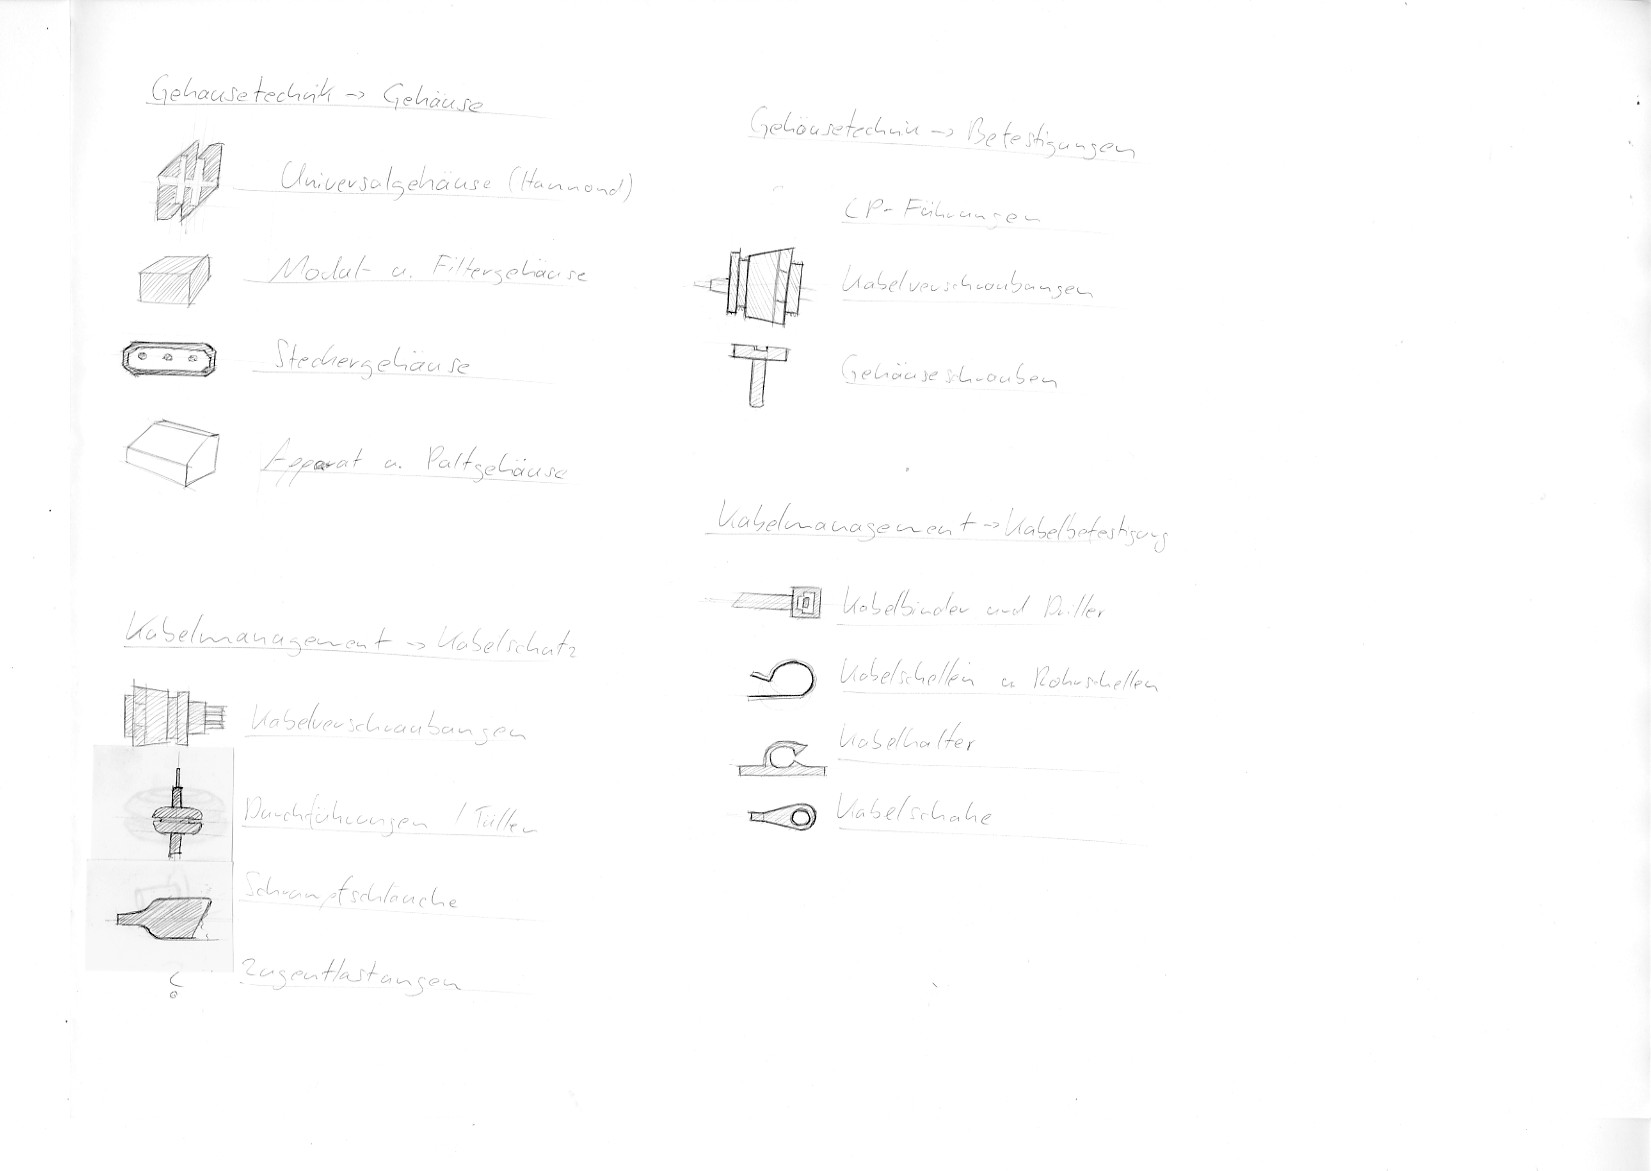 Gehäusetechnik -> Gehäuse
Universalgehäuse (Hammond)
Modul- u. Filtergehäuse
Steckergehäuse
Apparat u. Pultgehäuse
Kabelmanagement -> Kabelschutz
Kabelverschraubungen
Durchführungen / Tüllen
Schrumpfschläuche
?
Zugentlastungen
Gehäusetechnik -> Befestigungen
LP-Führungen
Kabelverschraubungen
Gehäuseschrauben
Kabelmanagement -> Kabelbefestigung
Kabelbinder und Driller
Kabelschellen u Rohrschellen
Kabelhalter
Kabelschuhe